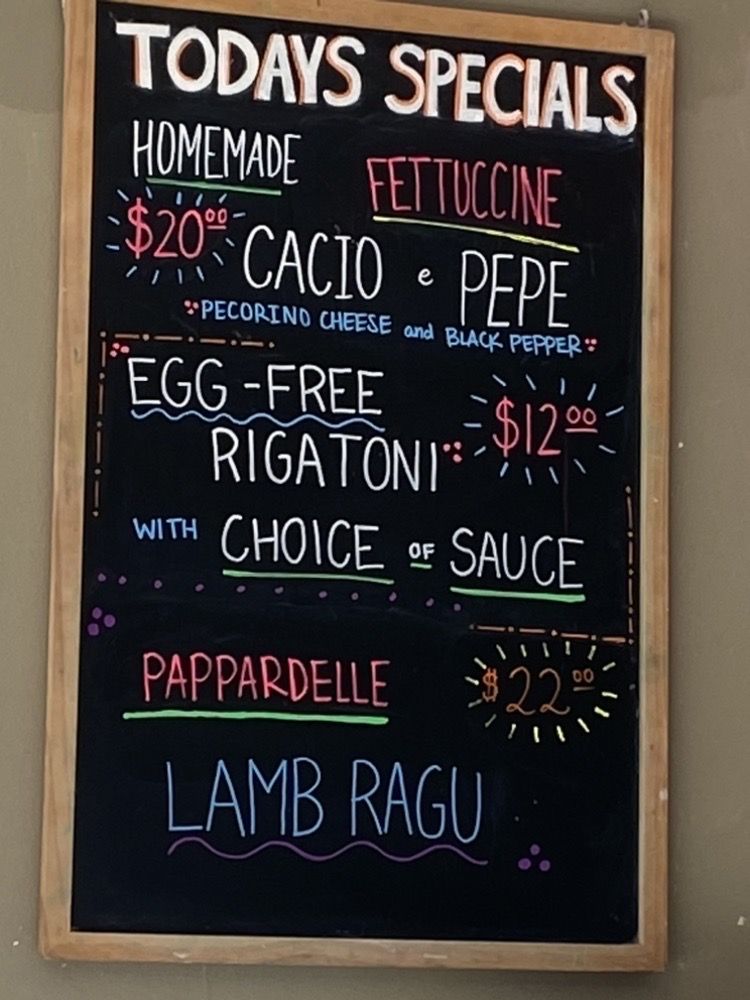 TODAYS SPECIALS
HOMEMADE FETTUCCINE
$20⁰⁰ CACIO e PEPE
PECORINO CHEESE and BLACK PEPPER
EGG-FREE
RIGATONI $12⁰⁰
WITH CHOICE OF SAUCE
PAPPARDELLE $22⁰⁰
LAMB RAGU